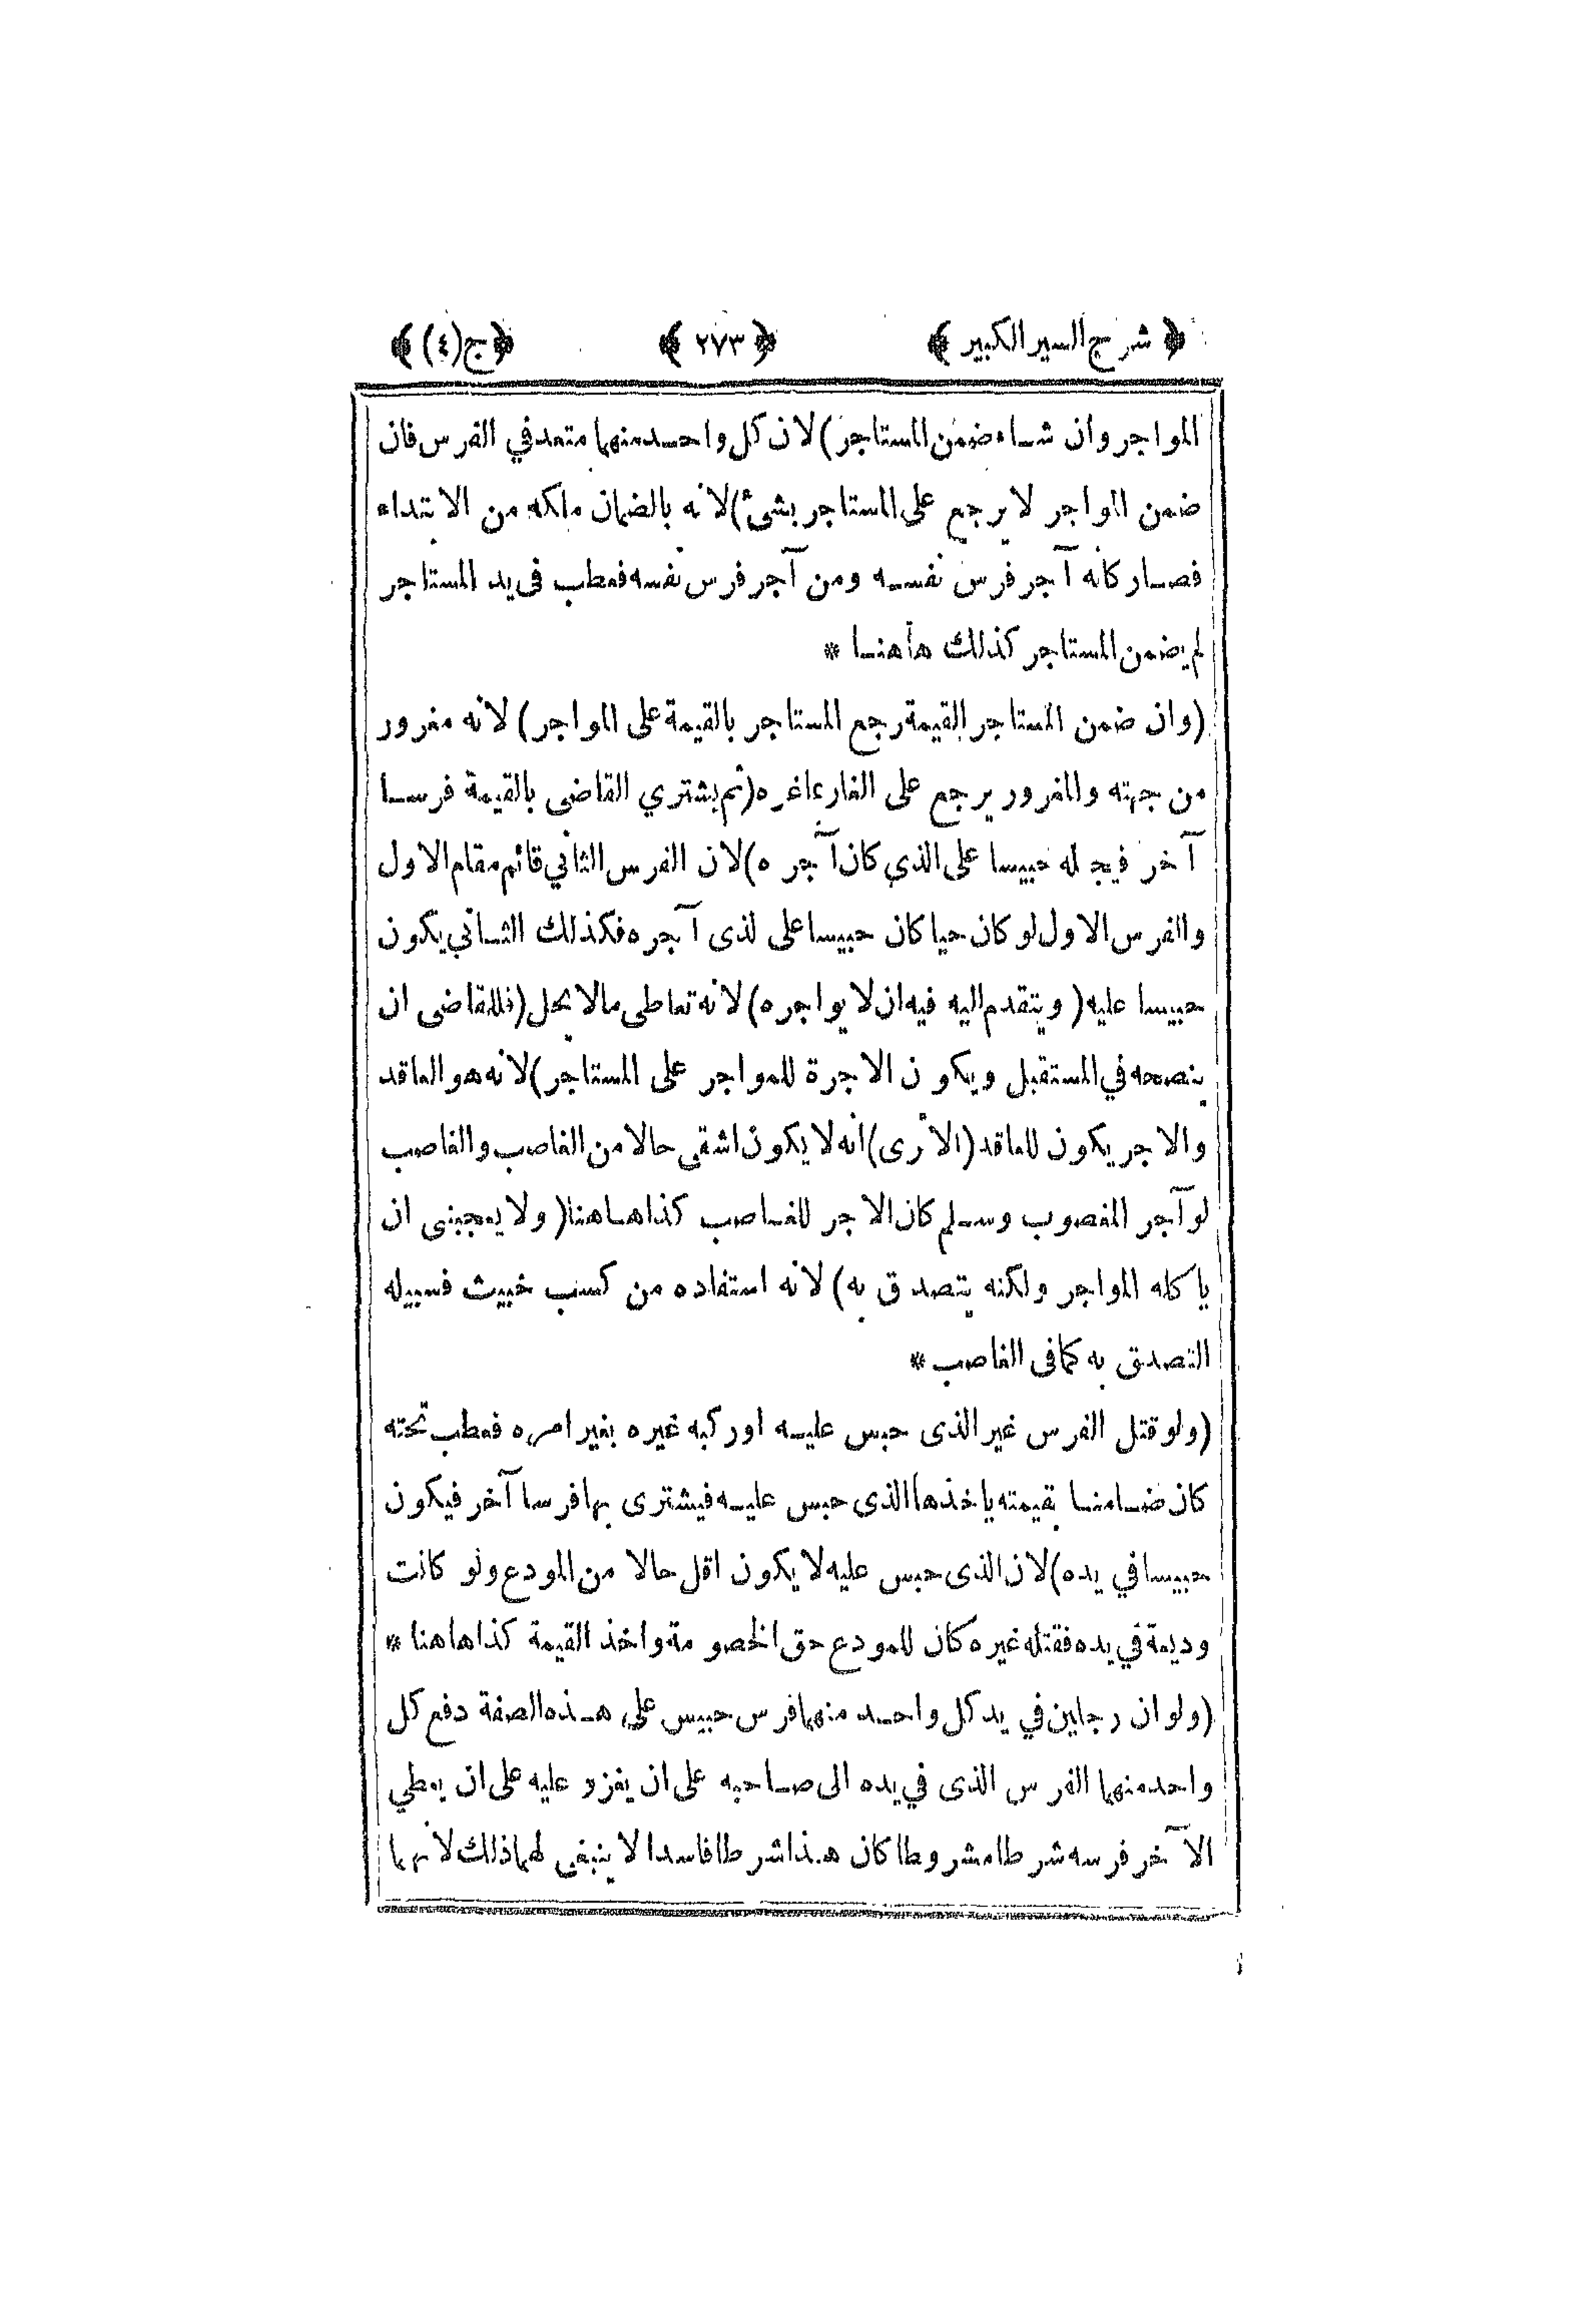 ﴿ شرح السير الكبير ﴾ ﴿ ٢٧٣ ﴾ ﴿ ج(٤) ﴾
المواجر وان شاء ضمن المستاجر) لان كل واحد منهما متعد في الفرس فان
ضمن المواجر لا يرجع على المستاجر بشئ) لانه بالضمان ملكه من الابتداء
فصار كانه آجر فرس نفسه ومن آجر فرس نفسه فعطب فى يد المستاجر
لم يضمن المستاجر كذلك هاهنا *
(وان ضمن المستاجر القيمة رجع المستاجر بالقيمة على المواجر) لانه مغرور
من جهته والمغرور يرجع على الغار بما غره (ثم يشتري القاضى بالقيمة فرسا
آخر فيجعله حبيسا على الذي كان آجره) لان الفرس الثاني قائم مقام الاول
والفرس الاول لو كان حيا كان حبيسا على لذى آجره فكذلك الثاني يكون
حبيسا عليه (ويتقدم اليه فيه ان لا يواجره) لانه تعاطى مالا يحل (فللقاضى ان
ينصحه في المستقبل ويكون الاجرة للمواجر على المستاجر) لانه هو العاقد
والاجر يكون للعاقد (الا ترى) انه لا يكون اشقى حالا من الغاصب والغاصب
لو آجر المغصوب وسلم كان الاجر للغاصب كذا هاهنا (ولا يعجبنى ان
ياكله المواجر ولكنه يتصدق به) لانه استفاده من كسب خبيث فسبيله
التصدق به كما فى الغاصب *
(ولو قتل الفرس غير الذى حبس عليه او ركبه غيره بغير امره فعطب تحته
كان ضامنا بقيمته ياخذها الذى حبس عليه فيشترى بها فرسا آخر فيكون
حبيسا في يده) لان الذى حبس عليه لا يكون اقل حالا من المودع ولو كانت
وديعة في يده فقتله غيره كان للمودع حق الخصومة واخذ القيمة كذا هاهنا *
(ولو ان رجلين في يد كل واحد منهما فرس حبيس على هذه الصفة دفع كل
واحد منهما الفرس الذى في يده الى صاحبه على ان يغزو عليه على ان يعطي
الآخر فرسه شرطا مشروطا كان هذا شرطا فاسدا لا ينبغى لهما ذلك لانهما